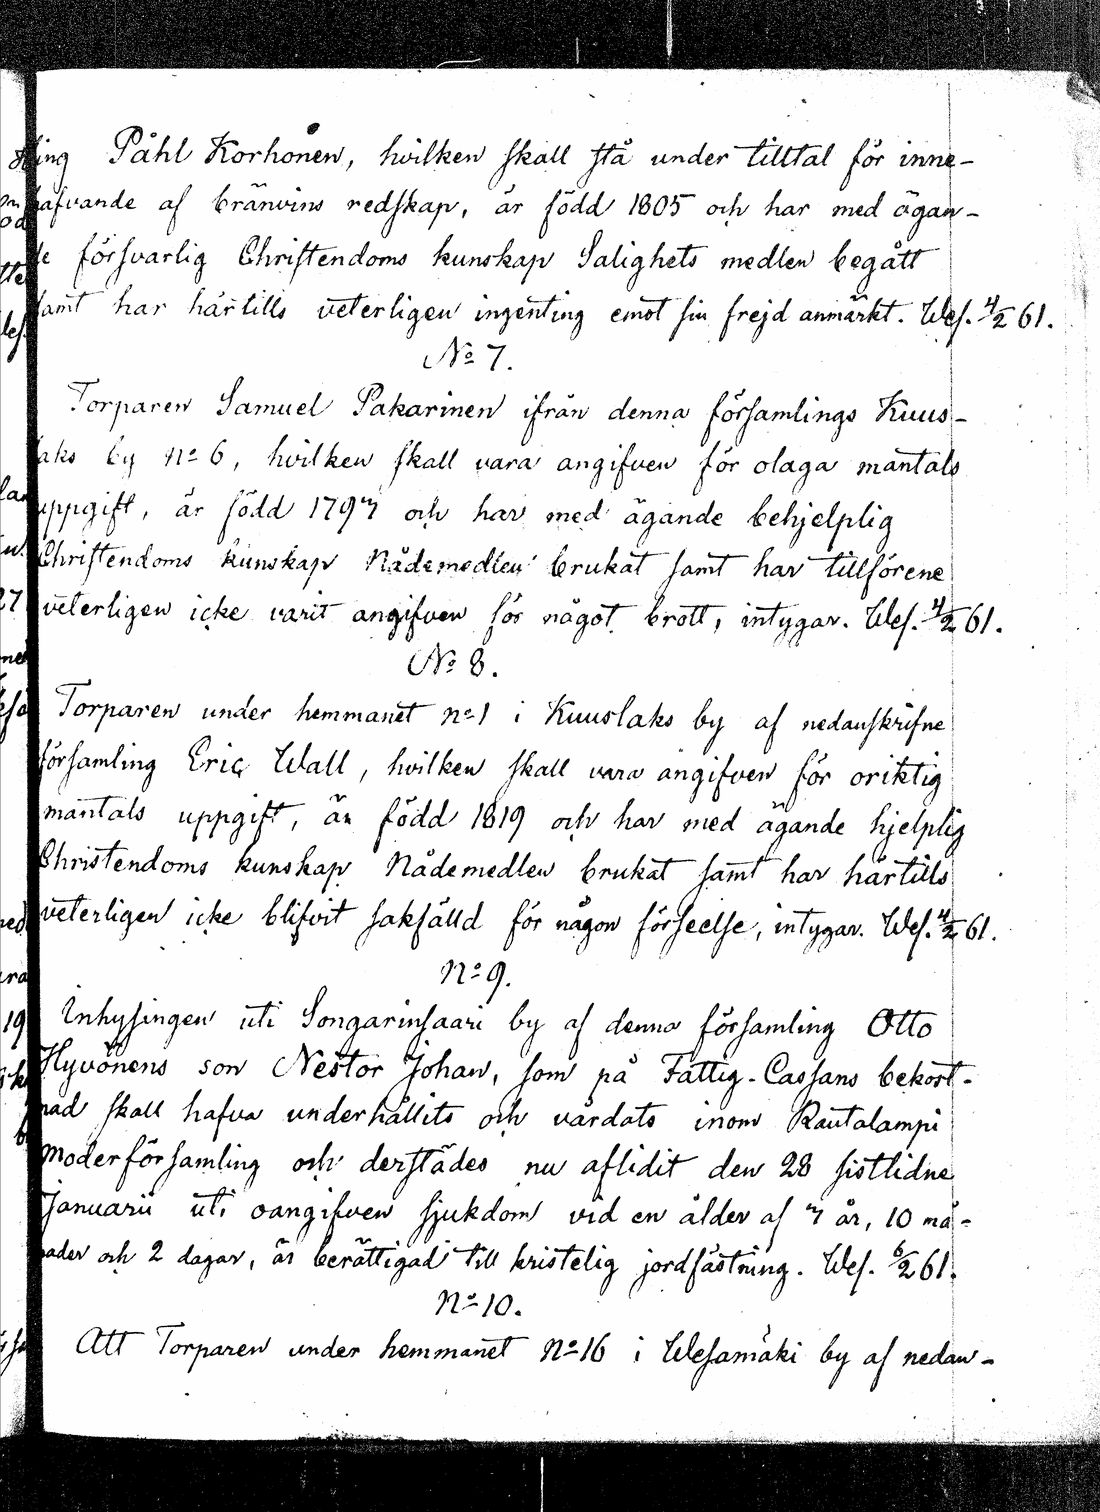 ling Påhl Korhonen, hvilken skall stå under tilltal för inne-
hafvande af bränvins redskap, är född 1805 och har med ägan-
de försvarlig Christendoms kunskap Salighets medlen begått
samt har härtills veterligen ingenting emot sin frejd anmärkt. Wes. 4/2 61.
No 7.
Torparen Samuel Pakarinen ifrån denna församlings Kuus-
laks by no 6, hvilken skall vara angifven för olaga mantals
uppgift, är född 1797 och har med ägande behjelplig
Christendoms kunskap Nådemedlen brukat samt har tillförene
veterligen icke varit angifven för något brott, intygar. Wes. 4/2 61.
No 8.
Torparen under hemmanet no 1 i Kuuslaks by af nedanskrifne
församling Eric Wall, hvilken skall vara angifven för oriktig
mantals uppgift, är född 1819 och har med ägande hjelplig
Christendoms kunskap Nådemedlen brukat samt har härtills
veterligen icke blifvit sakfälld för någon förseelse, intygar. Wes. 4/2 61.
No 9.
Inhysingen uti Songarinsaari by af denna församling Otto
Hyvönens son Nestor Johan, som på Fattig-Cassans bekost-
nad skall hafva underhållits och vårdats inom Rautalampi
moderförsamling och derstädes nu aflidit den 28 sistlidne
Januarii uti oangifven sjukdom vid en ålder af 7 år, 10 må-
nader och 2 dagar, är berättigad till kristelig jordfästning. Wes. 6/2 61.
No 10.
Att Torparen under hemmanet No 16 i Wesamäki by af nedan-